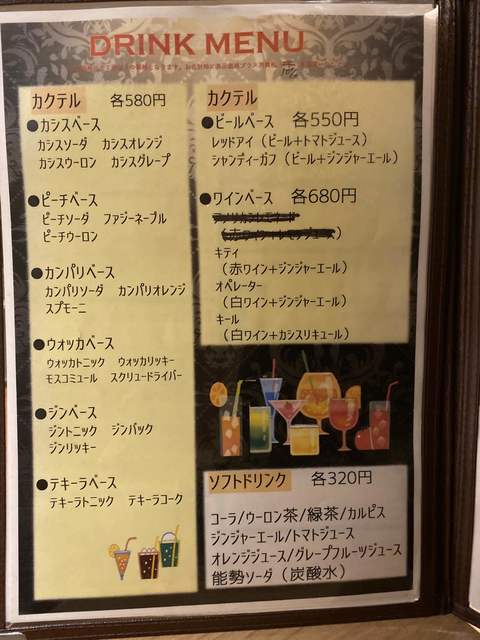 DRINK MENU
カクテル 各580円
●カシスベース
カシスソーダ カシスオレンジ
カシスウーロン カシスグレープ
●ピーチベース
ピーチソーダ ファジーネーブル
ピーチウーロン
●カンパリベース
カンパリソーダ カンパリオレンジ
スプモーニ
●ウォッカベース
ウォッカトニック ウォッカリッキー
モスコミュール スクリュードライバー
●ジンベース
ジントニック ジンバック
ジンリッキー
●テキーラベース
テキーラトニック テキーラコーク
カクテル
●ビールベース 各550円
レッドアイ（ビール＋トマトジュース）
シャンディーガフ（ビール＋ジンジャーエール）
●ワインベース 各680円
アメリカンレモネード
（赤ワイン＋レモンジュース）
キティ
（赤ワイン＋ジンジャーエール）
オペレーター
（白ワイン＋ジンジャーエール）
キール
（白ワイン＋カシスリキュール）
ソフトドリンク 各320円
コーラ/ウーロン茶/緑茶/カルピス
ジンジャーエール/トマトジュース
オレンジジュース/グレープフルーツジュース
能勢ソーダ（炭酸水）